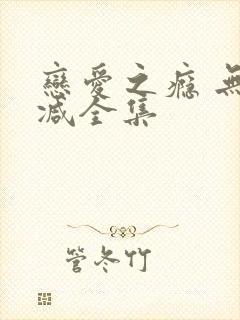 戀愛之瘾 無
减全集
管冬竹